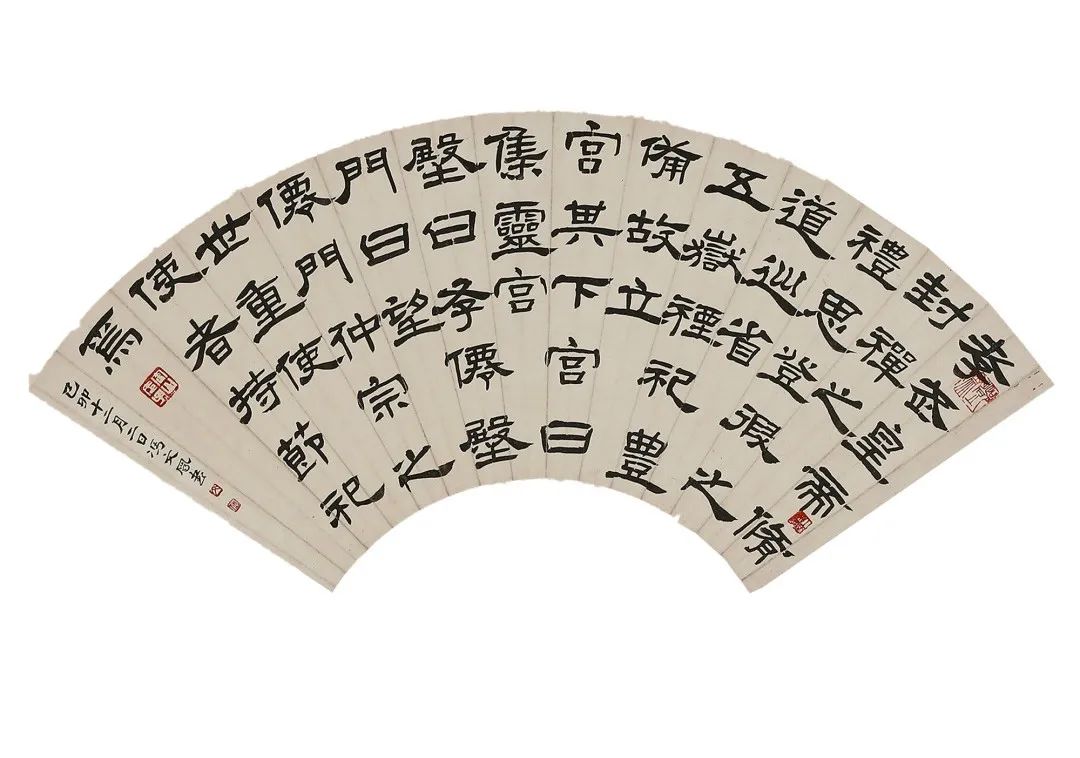 孝武皇帝脩
封禪之
禮思登徦之
道巡省
五嶽禋祀豊
備故立
宮其下宮曰
集靈宮
壂曰存僊壂
門曰望
僊門仲宗之
世重使
使者持節祀
焉
己卯十二月二日馮文鳳書